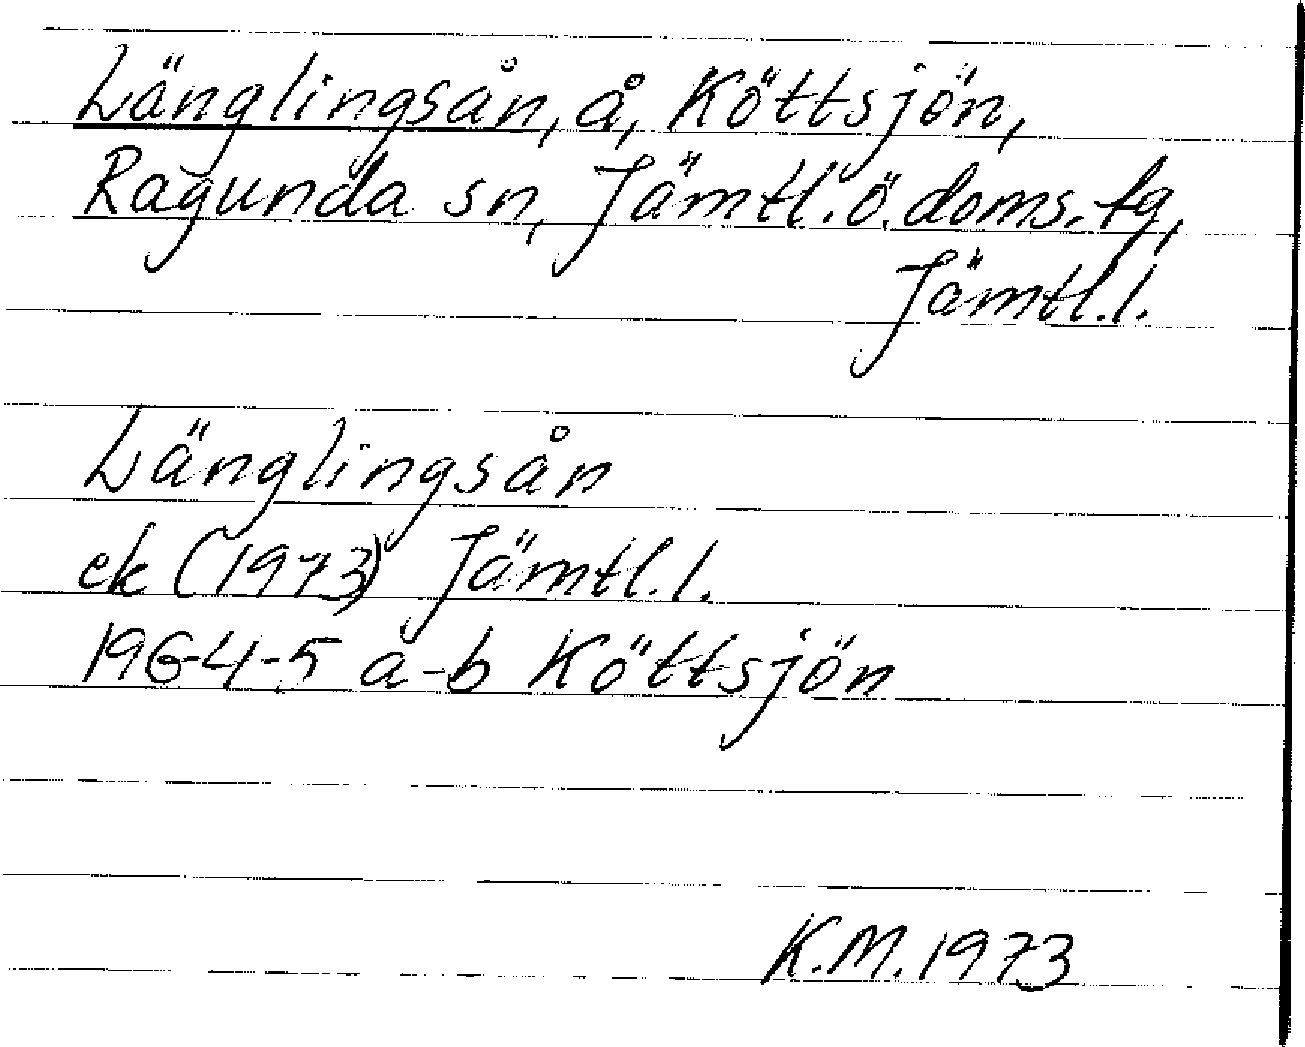 Länglingsån, å, Köttsjön,
Ragunda sn, Jämtl. ö. doms. tg,
Jämtl. l.
Länglingsån
ek (1973) Jämtl. l.
196-4-5 a-b Köttsjön
K.M. 1973